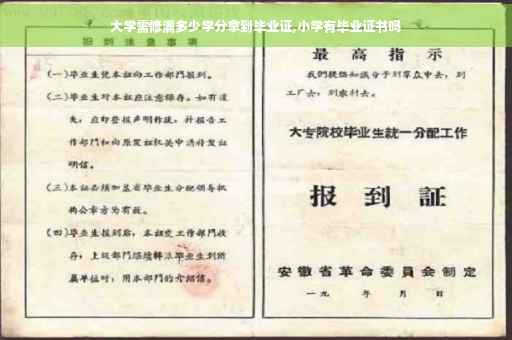 大学需修满多少学分拿到毕业证,小学有毕业证书吗
报到注意事项
(一)毕业生凭本证向工作部門报到。
(二)毕业生对本証应注意保存。如有遺
失,应即登报声明作废,并报告工
作部門和向原发証机关申請补发証
明信。
(三)本証必須加盖省毕业生分配領导机
构公章方为有效。
(四)毕业生报到后,本証交工作部門收
存,上級部門
毕业生到所
属单位时,用本部門的介紹信。
最高指示
我們提倡知識分子到羣众中去,到
工厂去,到农村去。
大专院校毕业生統一分配工作
报到証
安徽省革命委員会制定
一九 年 月 日